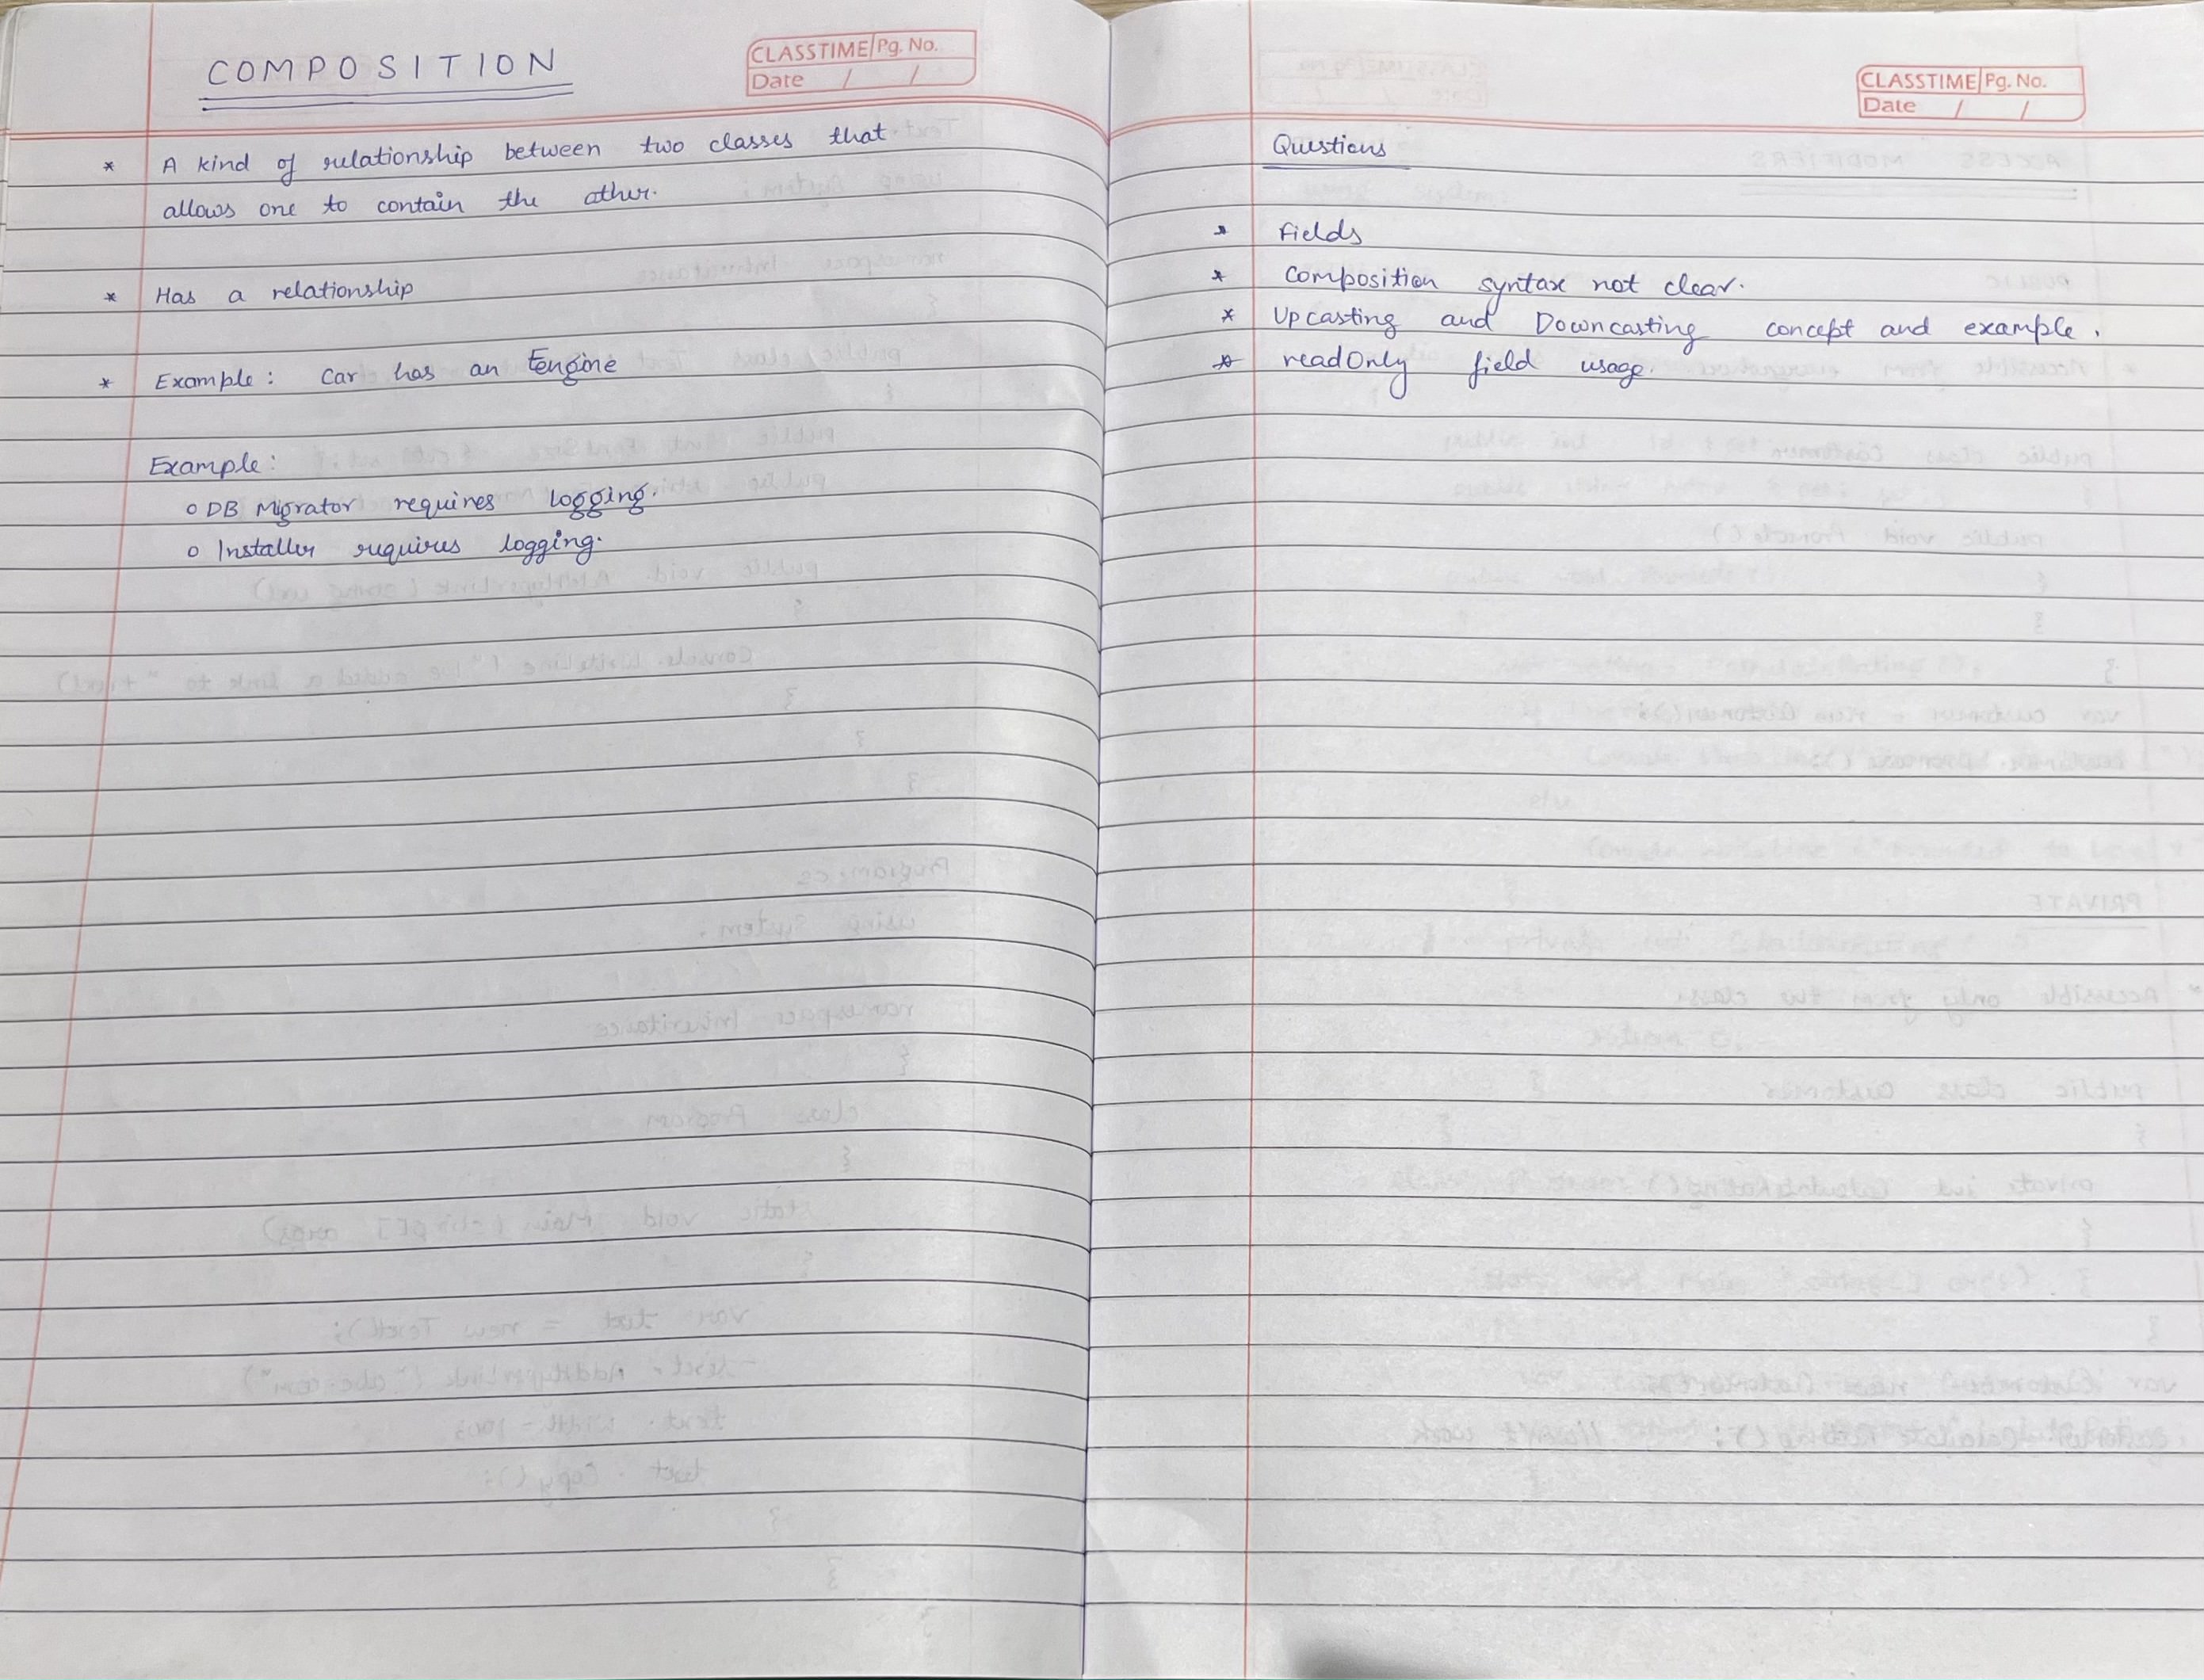 COMPOSITION
CLASSTIME Pg. No.
Date / /
* A kind of relationship between two classes that
allows one to contain the other.
* Has a relationship
* Example: Car has an Engine
Example:
o DB Migrator requires logging.
o Installer requires logging.
CLASSTIME Pg. No.
Date / /
Questions
* Fields
* Composition syntax not clear.
* Upcasting and Downcasting concept and example.
* readOnly field usage.